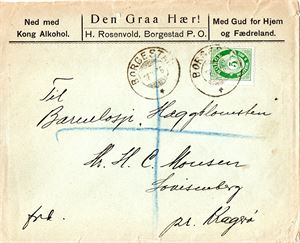 Ned med
Kong Alkohol.
Den Graa Hær!
H. Rosenvold, Borgestad P. O.
Med Gud for Hjem
og Fædreland.
BORGESTAD
5
Til
Barnelosje Hæggblomsten
Hr. H. C. Monsen
Lovisenberg
frk.
pr. Kragerø